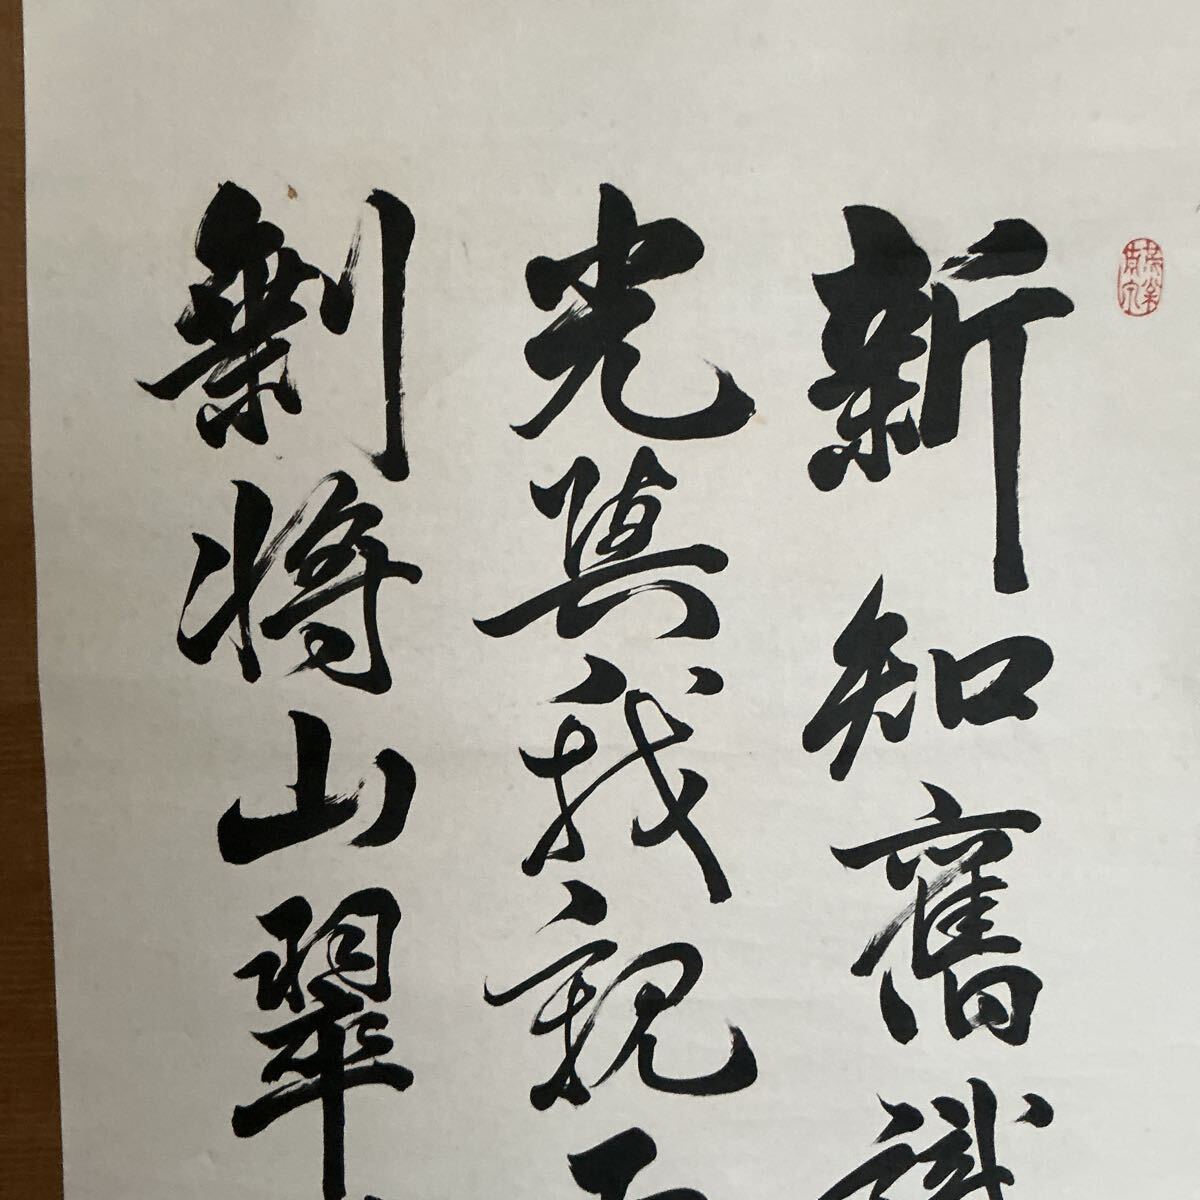 新知舊識
光與我親
剩將山翠